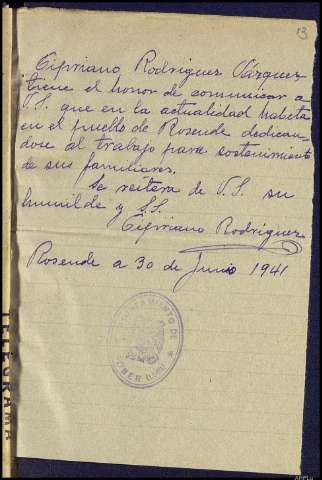 13
Cipriano Rodriguez Vázquez
tiene el honor de comunicar a
V.S. que en la actualidad habita
en el pueblo de Rosende dedican-
dose al trabajo para sostenimiento
de sus familiares.
Se reitera de V.S. su
humilde y S.S.
Cipriano Rodríguez
Rosende a 30 de Junio 1941
AYUNTAMIENTO DE
SOBER
TELEGRAMA